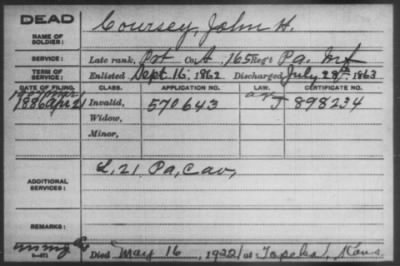 DEAD
NAME OF SOLDIER: Coursey, John H.
SERVICE: Late rank, Pvt Co. A, 165 Reg't Pa. Inf
TERM OF SERVICE: Enlisted Sept. 16, 1862 Discharged July 28th, 1863
DATE OF FILING. CLASS. APPLICATION NO. LAW. CERTIFICATE NO.
1886 Apr 21 Invalid, 570643 J 898234
Widow,
Minor,
ADDITIONAL SERVICES: L, 21, Pa, Cav,
REMARKS:
Died May 16, 1922, at Topeka, Kans.